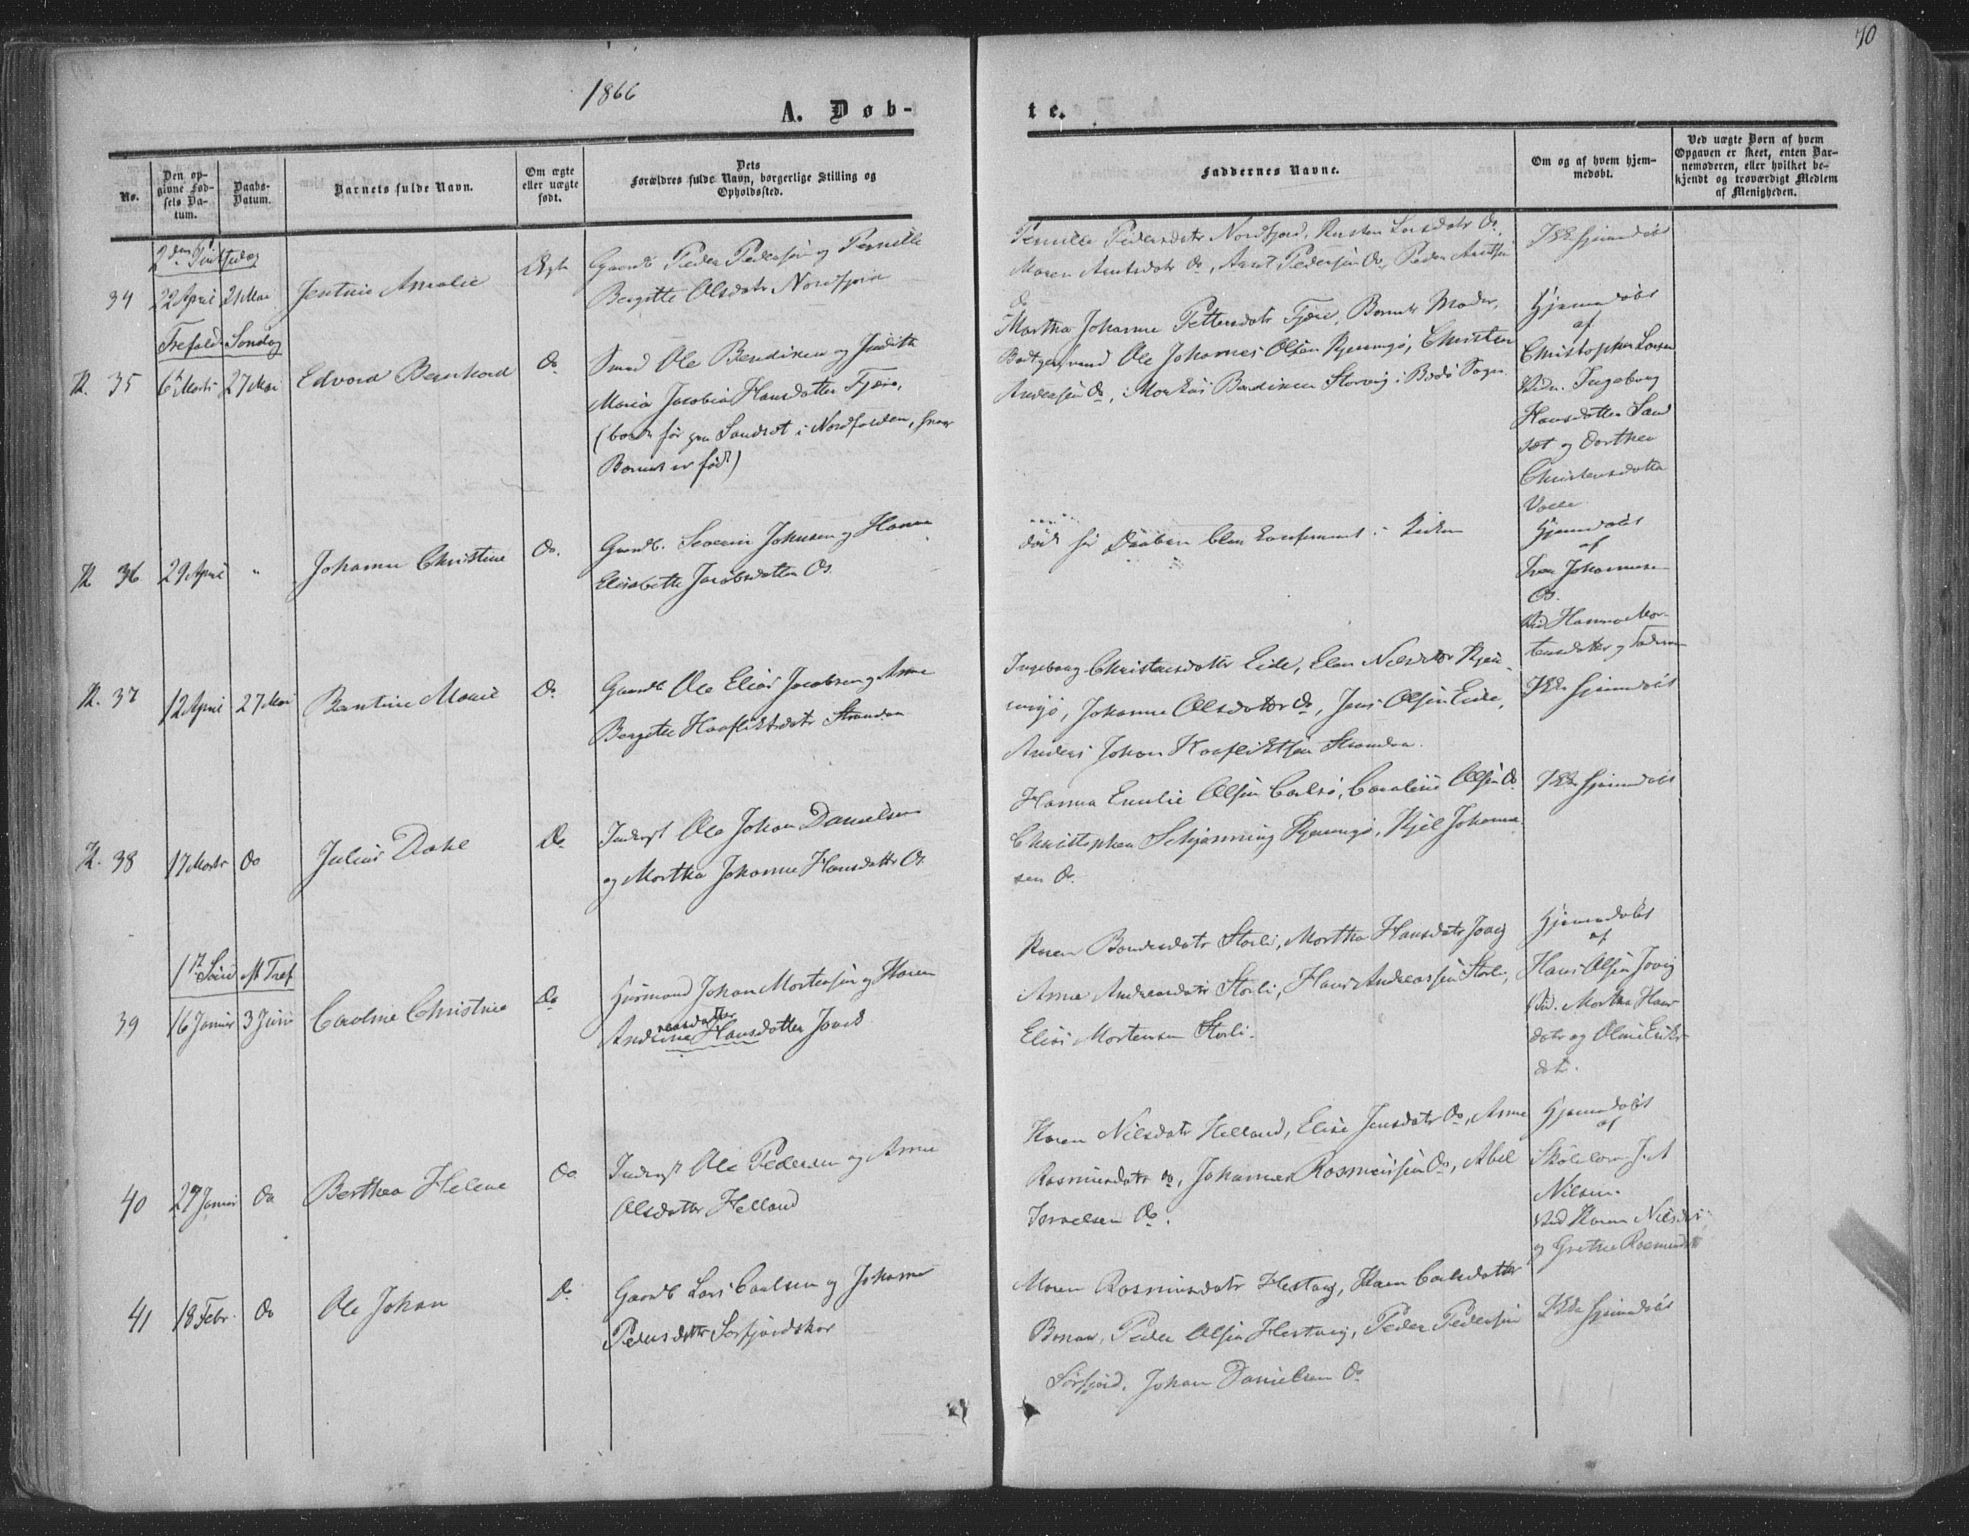 70
1866
A. Døb-
te.
No.
Den op-
givne Fød-
sels Da-
tum.
Daabs-
Datum.
Barnets fulde Navn.
Om ægte
eller uægte
født.
Dets
Forældres fulde Navn, borgerlige Stilling og
Opholdssted.
Faddernes Navne.
Om og af hvem hjem-
medøbt.
Ved uægte Børn af hvem
Opgaven er skeet, enten Bar-
nemoderen, eller hvilket be-
kjendt og troværdigt Medlem
af Menigheden.
34
22 April
21 Mai
Jentine Amalie
Ægte
Gaardb. Peder Pedersen og Pernille
Bergitte Olsdatr Nordfjord
Pernille Pedersdatr Nordfjord, Larsdatr Do,
Maren Arntsdatr Do, Arnt Pedersen Do, Peder Arntsen
Do
Ikke hjemmedøbt
Trefold. Søndag
K. 35
6 Marts
27 Mai
Edvard Bernhard
Do
Smed Ole Bendiksen og Judith
Maria Jacobia Hansdatter Fjære,
(boede før paa Sandset i Nordfolden, hvor
Barnet er født)
Martha Johanne Pettersdatr Fjære, Barnets Moder,
Ole Johannes Olsen Kjerringø, Christen
Andersen Do, Bendiksen Storvig i Bodø Sogn.
Hjemmedøbt
af
Christopher Larsen
Vidn. Ingeborg
Hansdatter Sand
set og Dorthea
Christensdatter
Valle
K 36
29 April
"
Johanna Christine
Do.
Gaardb. Severin Johnsen og Hanna
Elisabeth Jacobsdatter Os
død før Daaben blev i Kirken
Hjemmedøbt
af
Iver Johannesen
Os.
Vid Hanna Mor-
tensdatter og Faderen
K. 37
12 April
27 Mai
Bentine Marie
Do.
Gaardb Ole Elias Jacobsen og Anne
Bergitte Haafliktsdatr Strandaa
Ingeborg Christensdatter Eide, Elen Nilsdatter Kjerr-
ingø, Johanne Olsdatter Do, Jens Olsen Eide,
Anders Johan Haafliktsen Strandaa.
Ikke hjemmedøbt
K. 38
17 Marts
Do
Julius Dahl
Do
Inderst Ole Johan Danielsen
og Martha Johanne Hansdatter Os
Hanna Emilie Olsen , Caroline Olsen Do
Christopher Schjønning Kjerringø, Kjel Johanne-
sen Do.
Ikke hjemmedøbt
39
16 Januar
3 Juni
Caroline Christine
Do
Husmand Johan Mortensen og Karen
Andreasdatter
Karen Storli, Martha Hansdatr
Anne Andreasdatr Storli, Hans Andreassen Storli,
Elias Mortensen Storli.
Hjemmedøbt
af
Hans Olsen
Vid. Martha Hans-
datr og
datr.
40
29 Januar
Do
Berthea Helene
Do
Inderst Ole Pedersen og Anne
Olsdatter Helland
Karen Nilsdatr Helland, Elise Jensdatr Do, Anne
Rasmusdatr Do, Johannes Rasmussen Do, Abel
Israelsen Do.
Hjemmedøbt
af
Skolelærer J. A
Nilsen.
Vid Karen Nilsdatr
og Grethe
41
18 Febr.
Do
Ole Johan
Do
Gaardb Lars Carlsen og Johanne
Pedersdatter Sørfjordskar
Maren Rasmusdatr Hestvig, Karen Carlsdatter
Peder Olsen Hestvig, Peder Pedersen
Sørfjord, Johan Danielsen Do
Ikke hjemmedøbt